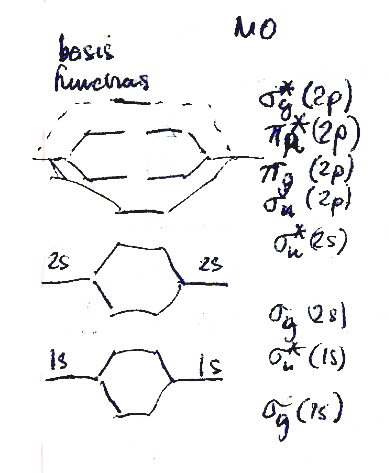 MO
basis
functions
σg*(2p)
π*(2p)
πg (2p)
σu (2p)
σu*(2s)
2s 2s
σg (2s)
σu*(1s)
1s 1s
σg(1s)